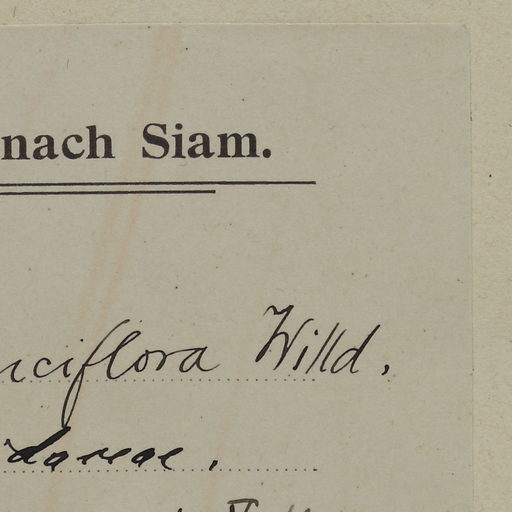 nach Siam.
uciflora Willd.
idaceae.